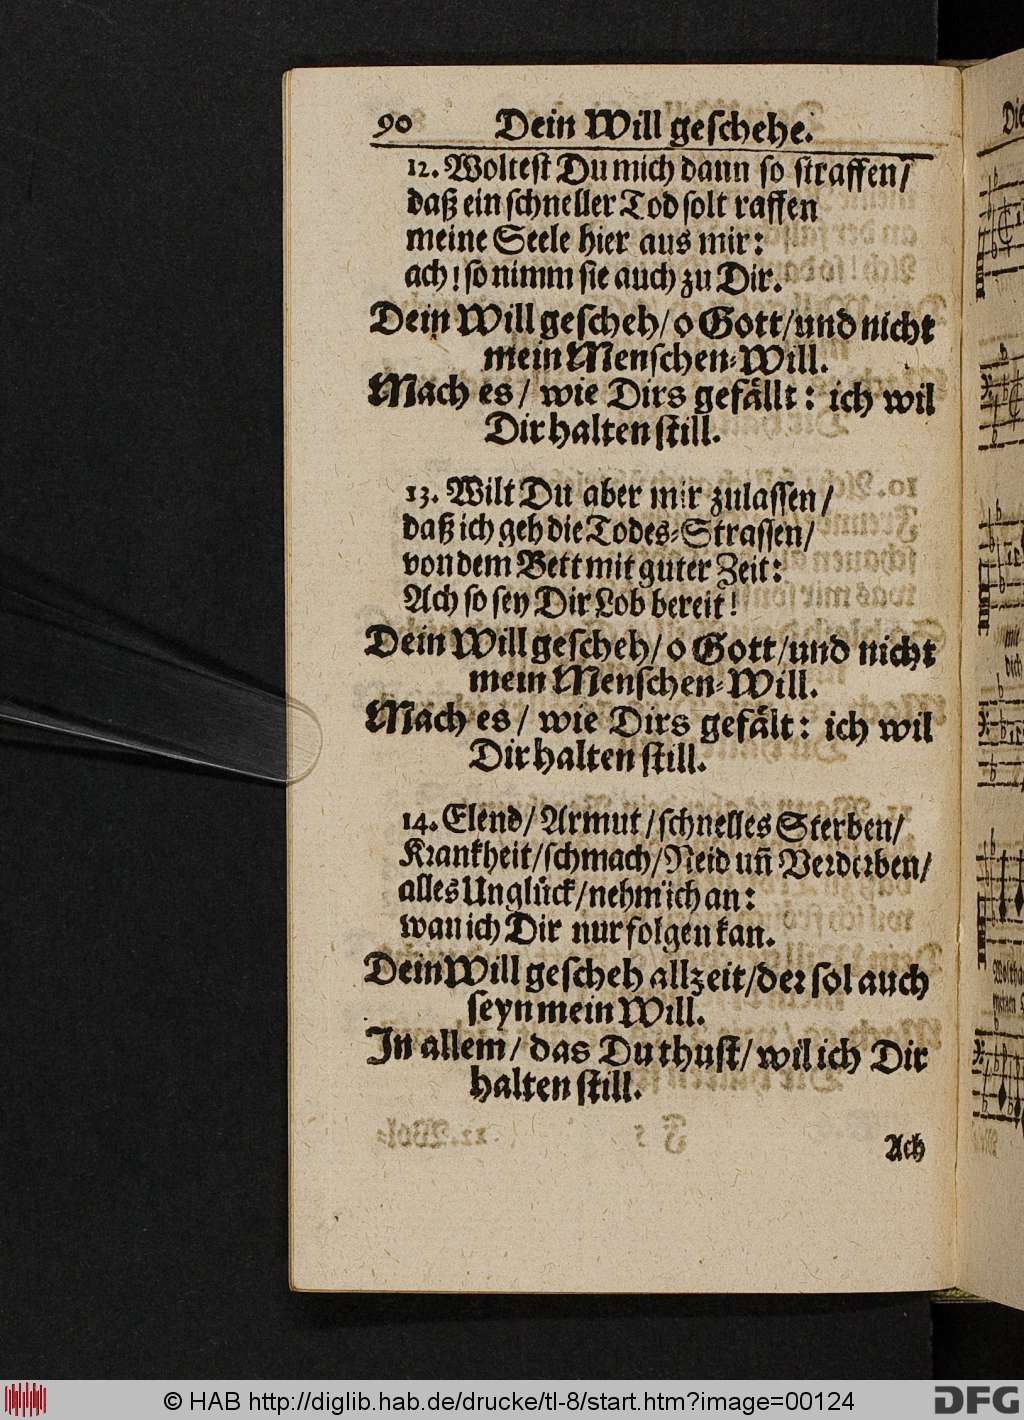 90 Dein Will geschehe.
12. Woltest Du mich dann so straffen/
daß ein schneller Tod solt raffen
meine Seele hier aus mir:
ach! so nimm sie auch zu Dir.
Dein Will gescheh/ o Gott/ und nicht
mein Menschen-Will.
Mach es/ wie Dirs gefällt: ich wil
Dir halten still.
13. Wilt Du aber mir zulassen/
daß ich geh die Todes-Strassen/
von dem Bett mit guter Zeit:
Ach so sey Dir Lob bereit!
Dein Will gescheh/ o Gott/ und nicht
mein Menschen-Will.
Mach es/ wie Dirs gefält: ich wil
Dir halten still.
14. Elend/ Armut/ schnelles Sterben/
Krankheit/ schmach/ Neid uñ Verderben/
alles Unglück/ nehm ich an:
wan ich Dir nur folgen kan.
Dein Will gescheh allzeit/ der sol auch
seyn mein Will.
In allem/ das Du thust/ wil ich Dir
halten still.
Ach
Die
mit
dich
© HAB http://diglib.hab.de/drucke/tl-8/start.htm?image=00124
DFG